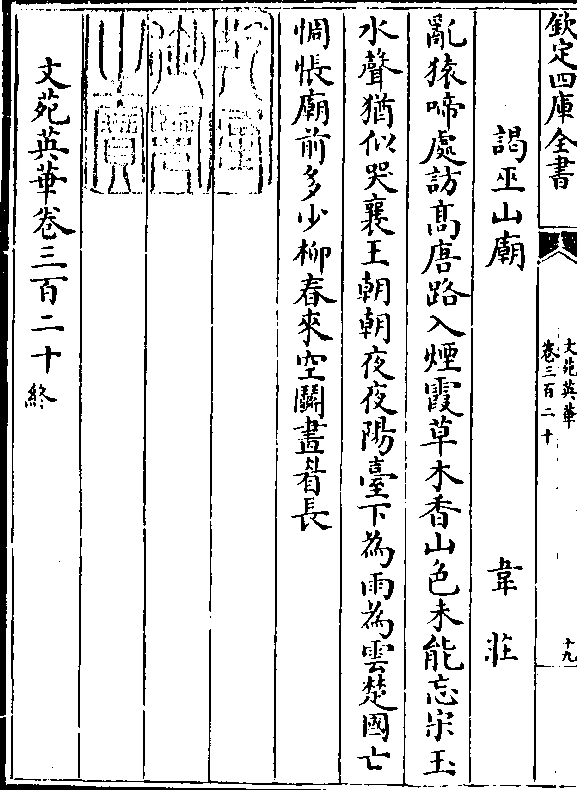 欽定四庫全書
文苑英華
卷三百二十
十九
謁巫山廟 韋莊
亂猿啼處訪髙唐路入煙霞草木香山色未能忘宋玉
水聲猶似哭襄王朝朝夜夜陽臺下為雨為雲楚國亡
惆悵廟前多少柳春來空鬬畫眉長
文苑英華卷三百二十終